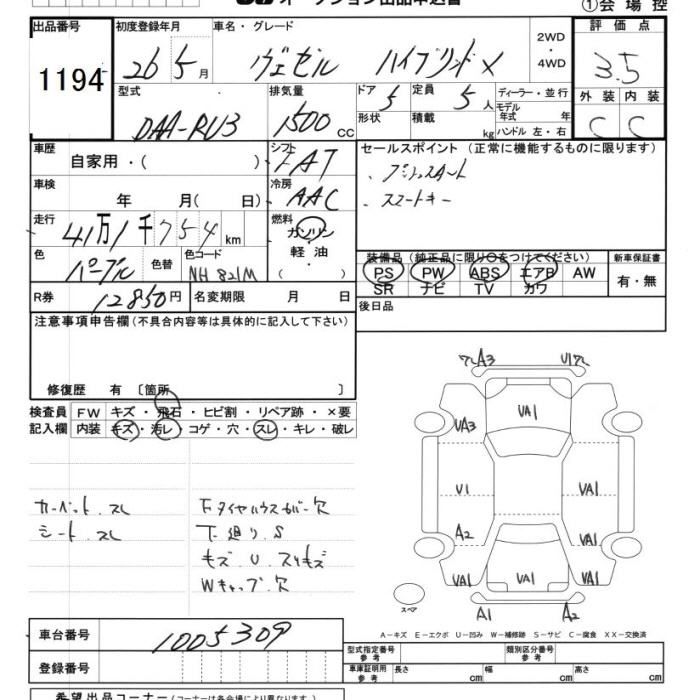 オークション出品申込書
①会場控
出品番号 初度登録年月 車名・グレード 2WD・4WD 評価点
1194 26 5月 ヴェゼル ハイブリッドX 3.5
型式 排気量 ドア 定員 ディーラー・並行 外装 内装
DAA-RU3 1500 CC 5 5人 モデル年式 年 C C
形状 積載 kg ハンドル 左・右
車歴 自家用・( ) シフト FAT セールスポイント (正常に機能するものに限ります)
車検 年 月( 日) 冷房 AAC
・プッシュスタート
・スマートキー
走行 41万1千754km 燃料 ガソリン・軽油・( )
色 パープル 色替 色コード NH821M
装備品(純正品に限り○をつけてください) 新車保証書
PS PW ABS エアB AW 有・無
SR ナビ TV カワ
R券 12850円 名変期限 月 日 後日品
注意事項申告欄(不具合内容等は具体的に記入して下さい)
修復歴 有〔箇所 〕
検査員 FW キズ・飛石・ヒビ割・リペア跡・×要
記入欄 内装 キズ・汚レ・コゲ・穴・スレ・キレ・破レ
カーペット.スレ
シート.スレ
Fタイヤハウスカバー欠
下廻り.S
キズ.U.スリキズ
Wキャップ欠
A3
VA1
VA3
U1
VA1
A2
VA1
VA1
VA1
VA1
A1
A2
スペア
A-キズ E-エクボ U-凹み W-補修跡 S-サビ C-腐食 XX-交換済
車台番号 1005309
型式指定番号 参考 類別区分番号 参考
登録番号
車庫証明用 参考 長さ cm 幅 cm 高さ cm
希望出品コーナー(コーナーは各会場により異なります)